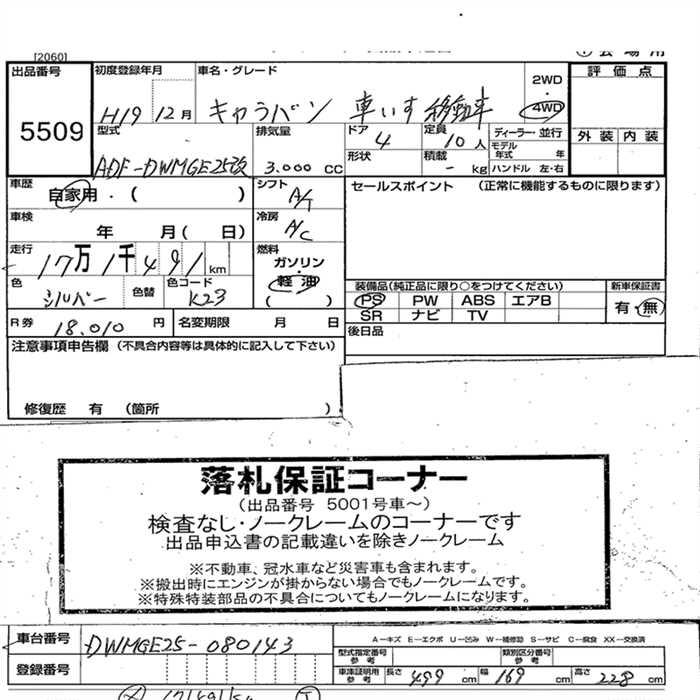 [2060]
出品番号
5509
初度登録年月
H19 12月
車名・グレード
キャラバン 車いす移動車
2WD
・
4WD
評価点
外装 内装
型式
ADF-DWMGE25改
排気量
3.000 CC
ドア
4
定員
10人
ディーラー・並行
形状
積載
- kg
モデル年式 年
ハンドル 左・右
車歴
自家用・( )
シフト
A/T
セールスポイント (正常に機能するものに限ります)
車検
年 月( 日)
冷房
A/C
走行
17万1千491km
燃料
ガソリン
・
軽油
( )
色
シルバー
色替
色コード
K23
装備品(純正品に限り○をつけてください)
PS PW ABS エアB
SR ナビ TV
新車保証書
有・無
R券 18.010 円
名変期限 月 日
後日品
注意事項申告欄 (不具合内容等は具体的に記入して下さい)
修復歴 有 (箇所 )
落札保証コーナー
(出品番号 5001号車~)
検査なし・ノークレームのコーナーです
出品申込書の記載違いを除きノークレーム
※不動車、冠水車など災害車も含まれます。
※搬出時にエンジンが掛からない場合でもノークレームです。
※特殊特装部品の不具合についてもノークレームになります。
車台番号
DWMGE25-080143
A-キズ E-エクボ U-凹み W-補修跡 S-サビ C-腐食 XX-交換済
登録番号
型式指定番号 参考
類別区分番号 参考
車庫証明用 参考
長さ 499 cm 幅 169 cm 高さ 228 cm